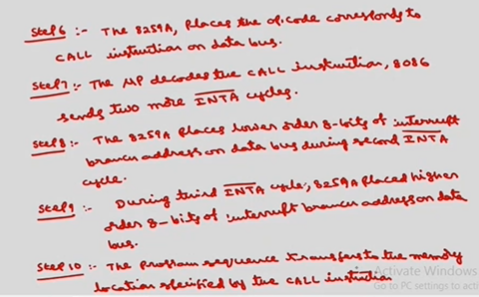 Step 6 :- The 8259A, Places the opcode corresponds to
CALL instruction on data bus.
Step 7 :- The MP decodes the CALL instruction, 8086
sends two more INTA cycles.
Step 8 :- The 8259A Places lower order 8-bits of interrupt
branch address on data bus during second INTA
cycle.
Step 9 :- During third INTA cycle, 8259A placed higher
order 8-bits of interrupt branch address on data
bus.
Step 10 :- The program sequence transfers to the memory
location specified by the CALL instruction
Activate Windows
Go to PC settings to acti